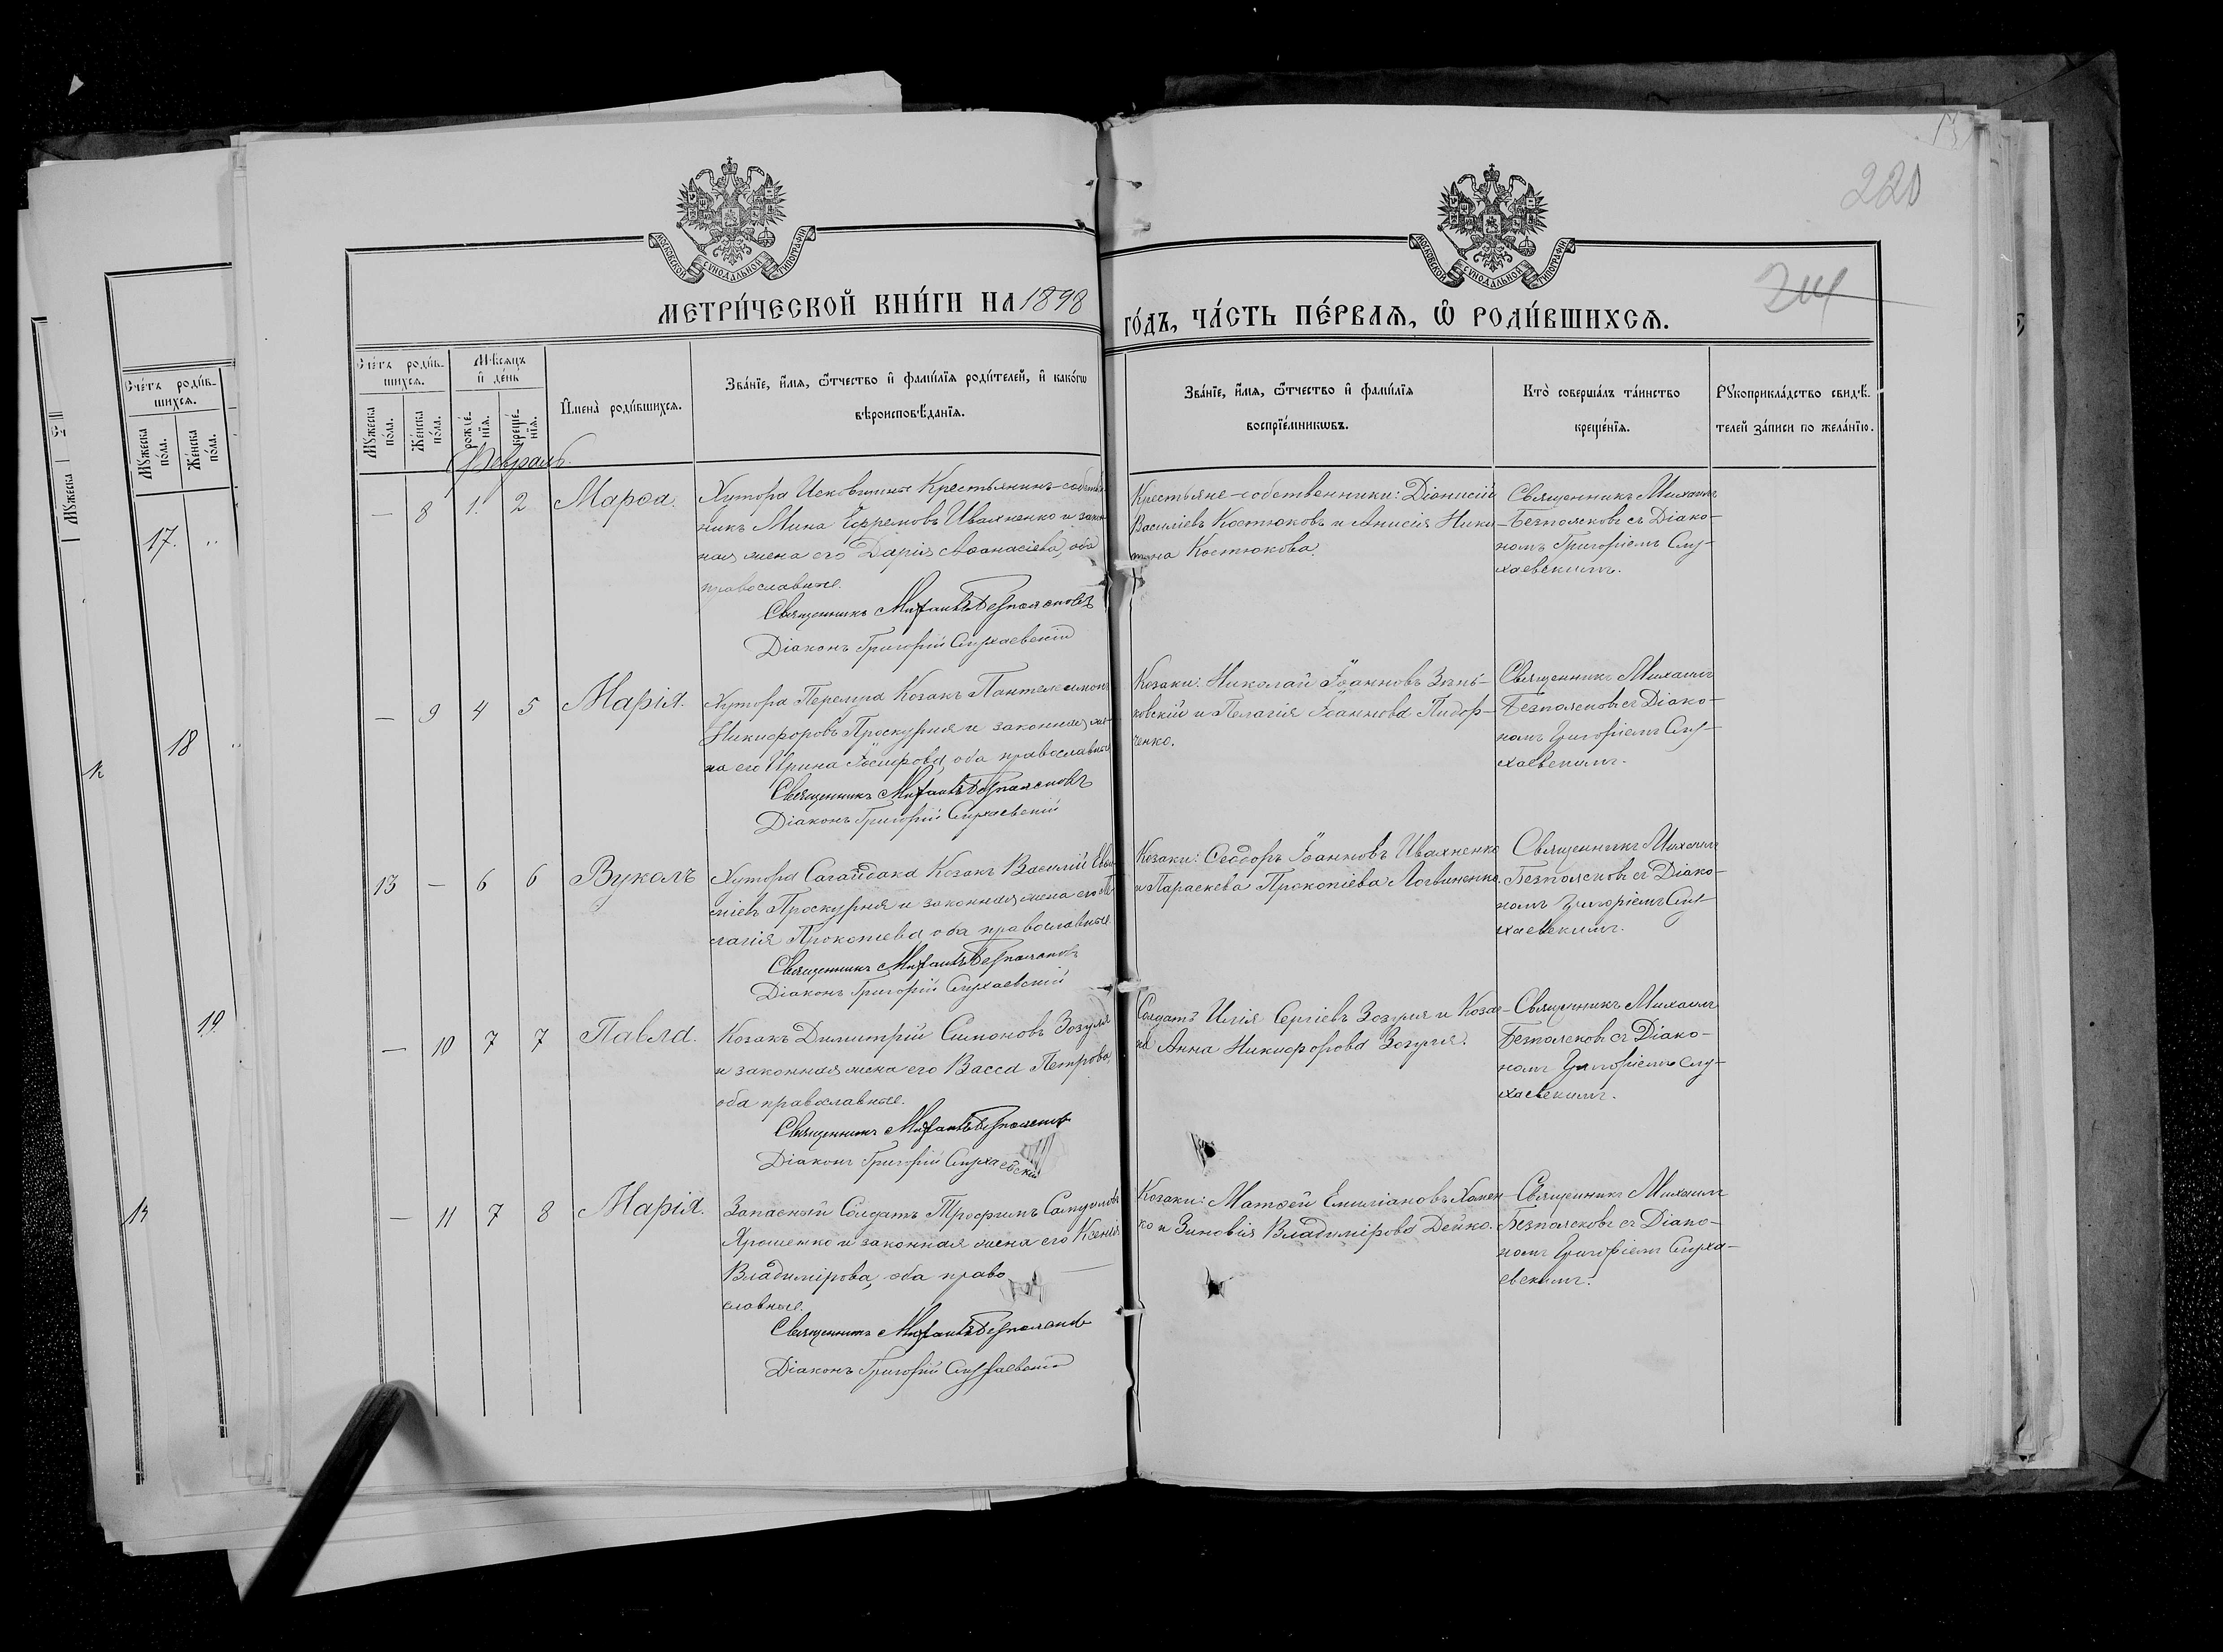 220
214
МОСКОВСКОЙ СѴНОДАЛЬНОЙ ТИПОГРАФІИ
МОСКОВСКОЙ СѴНОДАЛЬНОЙ ТИПОГРАФІИ
МЕТРИ́ЧЕСКОЙ КНИ́ГИ НА 1898
ГО́ДЪ, ЧА́СТЬ ПЕ́РВАѦ, Ѡ҆ РОДИ́ВШИХСѦ.
Сче́тъ роди́в-
шихсѧ.
Мꙋ́жеска
по́ла.
Же́нска
по́ла.
Мѣ́сѧцъ
и҆ де́нь
рожде́-
нїѧ.
креще́-
нїѧ.
И҆мена̀ роди́вшихсѧ.
Зва́нїе, и҆́мѧ, ѻ҆́тчество и҆ фами́лїѧ роди́телей, и҆ како́гѡ
вѣроисповѣ́данїѧ.
Зва́нїе, и҆́мѧ, ѻ҆́тчество и҆ фами́лїѧ
воспрїе́мникѡвъ.
Кто̀ соверша́лъ та́инство
креще́нїѧ.
Рꙋкоприкла́дство свидѣ́-
телей за́писи по жела́нїю.
Февраль.
— 8 1. 2 Марѳа.
Хутора Исковщины Крестьянинъ-собствен
никъ Мина Ефремовъ Ивахненко и закон
ная жена его Дарія Аѳанасіева, оба
православные.
Священникъ Михаилъ Безпоясковъ
Діаконъ Григорій Слухаевскій
Крестьяне-собственники: Діонисій
Василіевъ Костюковъ и Анисія Ники-
тина Костюкова.
Священникъ Михаилъ
Безпоясковъ съ Діако-
номъ Григоріемъ Слу-
хаевскимъ.
— 9 4 5 Марія.
Хутора Перелуга Козакъ Пантелеимонъ
Никифоровъ Проскурня и законная же-
на его Ирина Іосифова, оба православные
Священникъ Михаилъ Безпоясковъ
Діаконъ Григорій Слухаевскій
Козаки: Николай Іоанновъ Зѣнь-
ковскій и Пелагія Іоаннова Пидор-
ченко.
Священникъ Михаилъ
Безпоясковъ съ Діако-
номъ Григоріемъ Слу-
хаевскимъ.
13 — 6 6 Вуколъ
Хутора Сагайдака Козакъ Василій
Проскурня и законная жена его Пе
лагія Прокопіева, оба православные
Священникъ Михаилъ Безпоясковъ
Діаконъ Григорій Слухаевскій
Козаки: Ѳеодоръ Іоанновъ Ивахненко
и Параскева Прокопіева Логвиненко.
Священникъ Михаилъ
Безпоясковъ съ Діако-
номъ Григоріемъ Слу-
хаевскимъ.
— 10 7 7 Павла.
Козакъ Димитрій Симоновъ Зозуля
и законная жена его Васса Петрова,
оба православные.
Священникъ Михаилъ Безпоясковъ
Діаконъ Григорій Слухаевскій
Солдатъ Илія Сергіевъ Зозуля и Козач-
ка Анна Никифорова Зозуля.
Священникъ Михаилъ
Безпоясковъ съ Діако-
номъ Григоріемъ Слу-
хаевскимъ.
— 11 7 8 Марія.
Запасный Солдатъ Трофимъ Самуиловъ
Ярошенко и законная жена его Ксенія
Владимірова, оба право
славные.
Священникъ Михаилъ Безпоясковъ
Діаконъ Григорій Слухаевскій
Козаки: Матѳей Емиліановъ Хомен-
ко и Зиновія Владимірова Дейко.
Священникъ Михаилъ
Безпоясковъ съ Діако-
номъ Григоріемъ Слуха-
евскимъ.
Сче́тъ роди́в-
шихсѧ.
Мꙋ́жеска
по́ла.
Же́нска
по́ла.
Мꙋ́жеска
17.
18
19
14